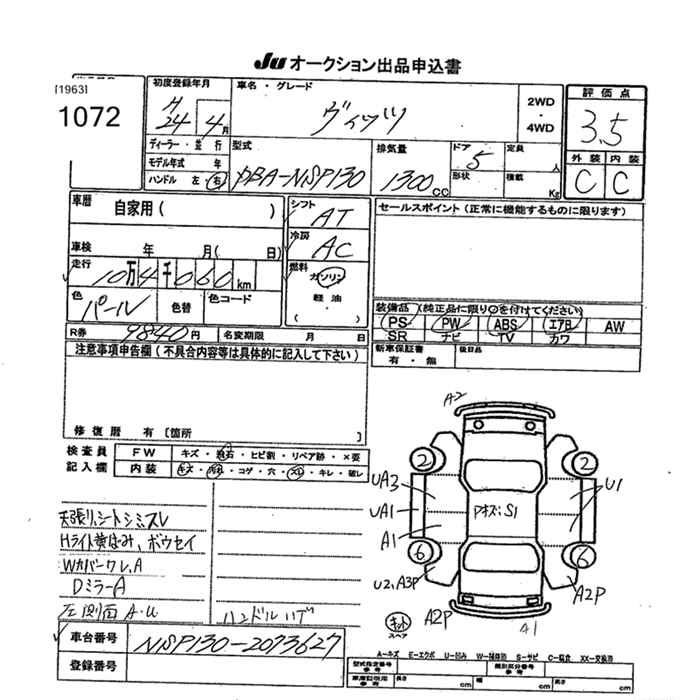 Ju オークション出品申込書
[1963]
1072
初度登録年月
H 24 4月
車名・グレード
ヴィッツ
2WD
・
4WD
評価点
3.5
外装 内装
C C
ディーラー・並行
モデル年式 年
ハンドル 左・右
型式
DBA-NSP130
排気量
1300 cc
ドア 5
形状
定員 人
積載 Kg
車歴
自家用( )
車検 年 月( 日)
走行
10万4千060km
色
パール
色替
色コード
R券 9840円
名変期限 月 日
シフト
AT
冷房
AC
燃料
ガソリン
軽油
・
( )
セールスポイント(正常に機能するものに限ります)
装備品(純正品に限り○を付けてください)
PS PW ABS エアB AW
SR ナビ TV カワ
新車保証書
有・無
後日品
注意事項申告欄(不具合内容等は具体的に記入して下さい)
修復歴 有[箇所 ]
検査員
記入欄
FW キズ・飛石・ヒビ割・リペア跡・×要
内装 キズ・汚れ・コゲ・穴・スレ・キレ・破レ
天張リ、シートシミスレ
Hライト黄ばみ、ボウセイ
Wカバーワレ、A
DミラーA
左側面 A・U
ハンドルハゲ
A2
2 2
UA3
UA1
A1
U1
Pキズ:S1
6 6
U2、A3P
A2P
A2P
A1
キット
スペア
車台番号
NSP130-2073627
登録番号
A-キズ E-エクボ U-凹み W-補修跡 S-サビ C-腐食 XX-交換済
型式指定番号
参考
類別区分番号
参考
車庫証明用
参考
長さ cm
幅 cm
高さ cm